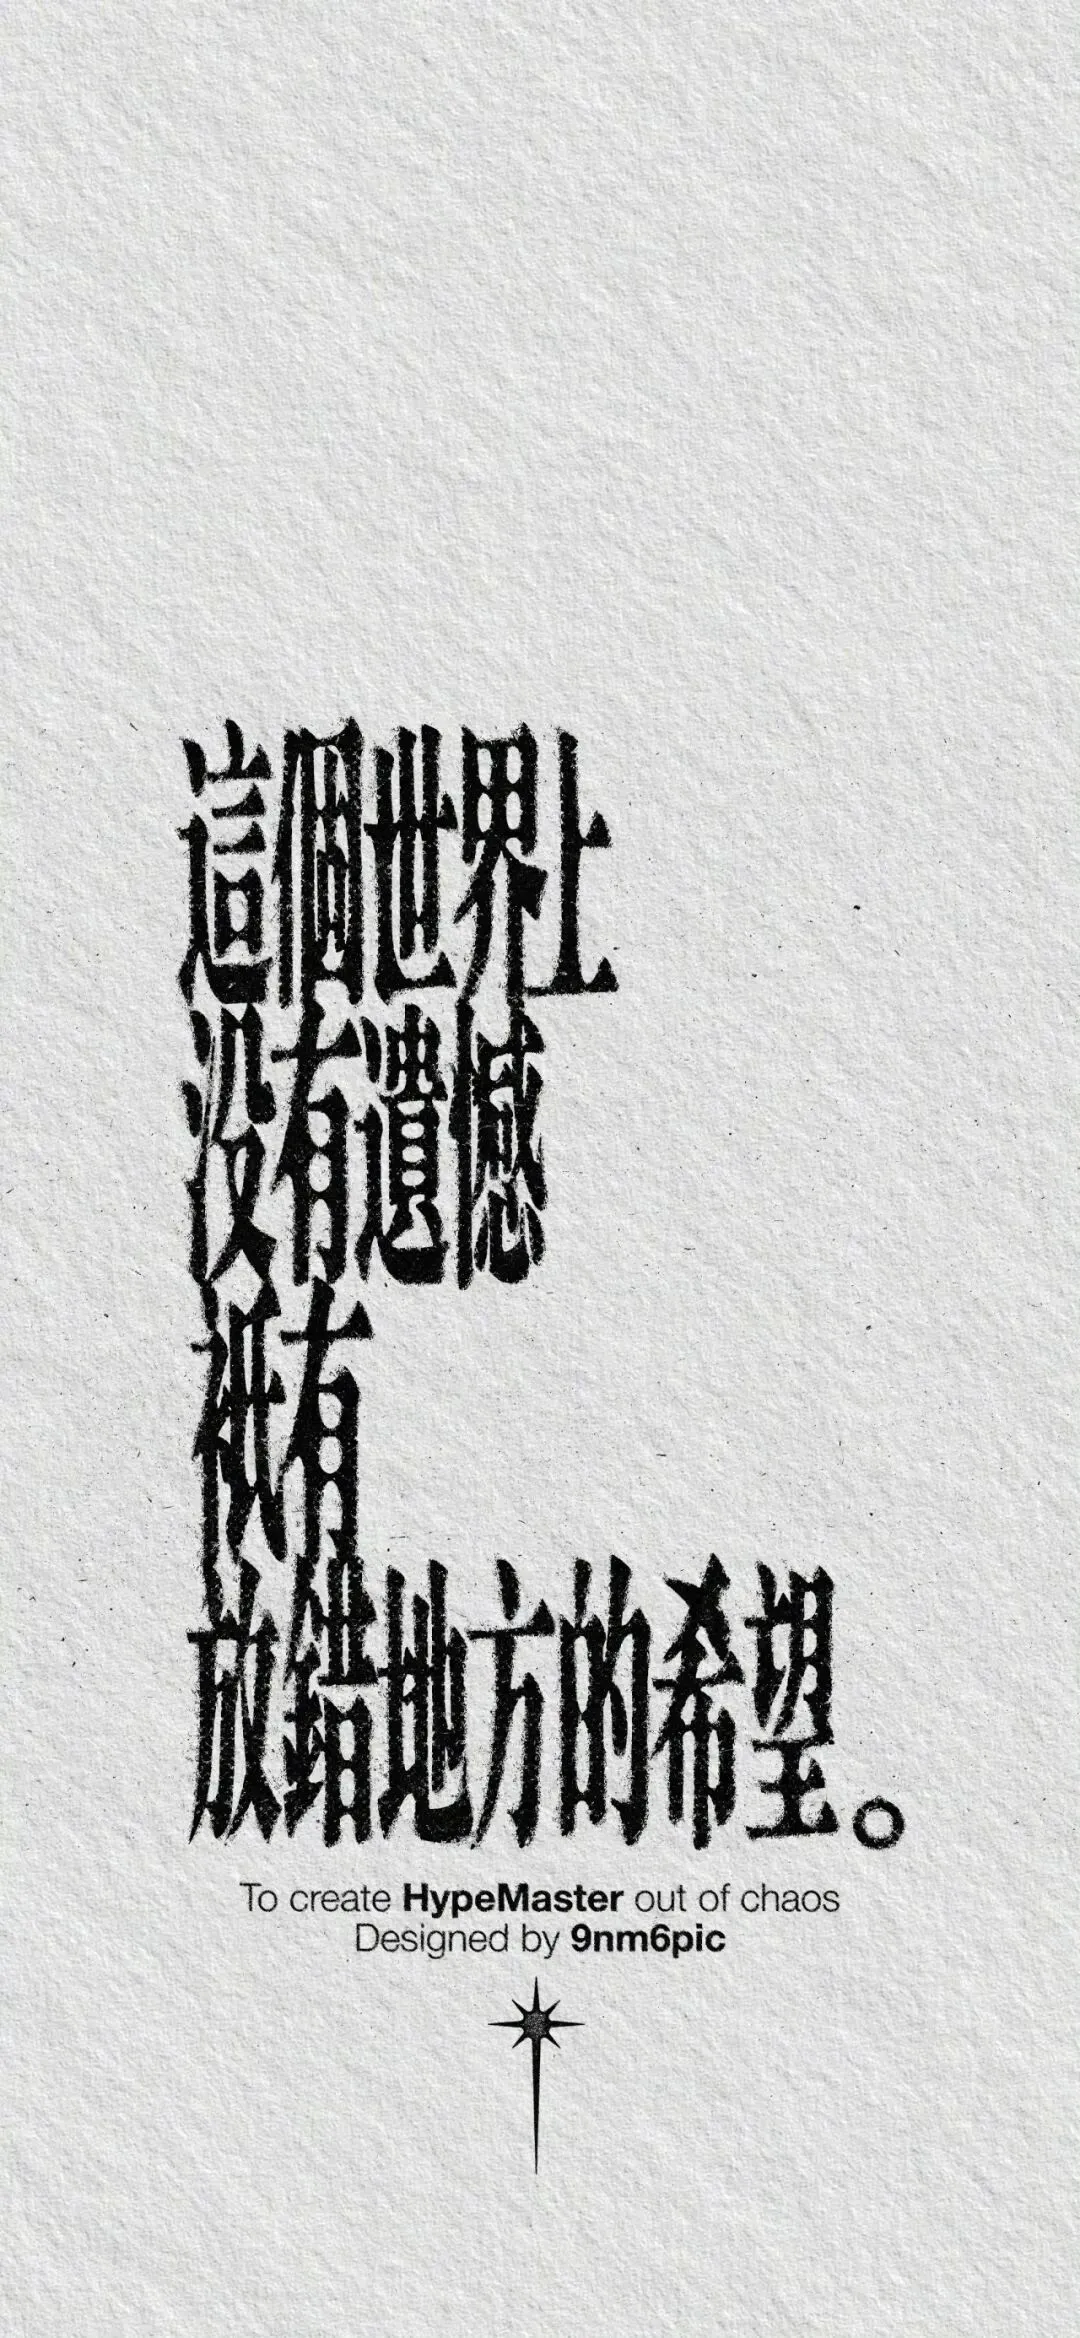 這個世界上
没有遺憾
衹有
放錯地方的希望。
To create HypeMaster out of chaos
Designed by 9nm6pic